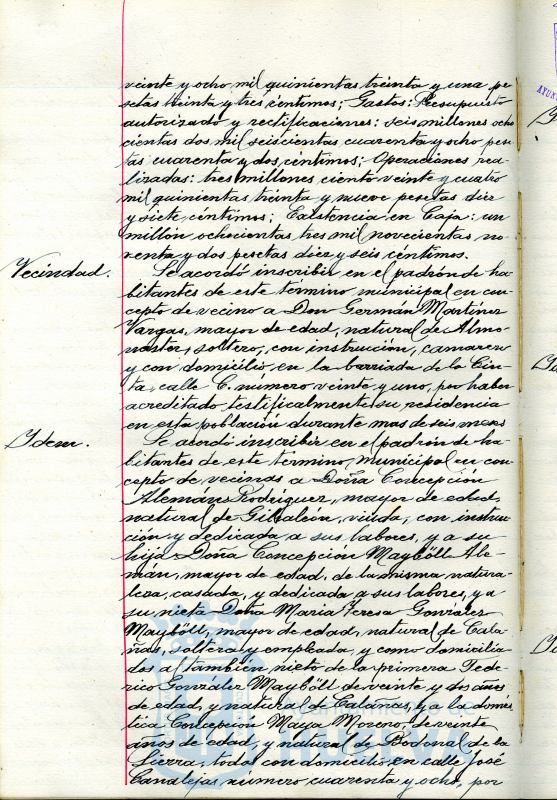 veinte y ocho mil quinientas treinta y una pe-
setas treinta y tres céntimos; Gastos: Presupuesto
autorizado y rectificaciones: seis millones ocho
cientas dos mil seiscientas cuarenta y ocho pese
tas cuarenta y dos céntimos; Operaciones rea-
lizadas: tres millones ciento veinte y cuatro
mil quinientas treinta y nueve pesetas diez
y siete céntimos; Existencia en Caja: un
millón ochocientas tres mil novecientas no-
venta y dos pesetas diez y seis céntimos.
Vecindad. Se acordó inscribir en el padrón de ha-
bitantes de este término municipal en con-
cepto de vecino a Don Germán Martínez
Vargas, mayor de edad, natural de Almo-
naster, soltero, con instrucción, camarero
y con domicilio en la barriada de la Cin-
ta, calle C. número veinte y uno, por haber
acreditado testificalmente su residencia
en esta población durante mas de seis meses
Idem. Se acordó inscribir en el padrón de ha-
bitantes de este término municipal en con-
cepto de vecinas a Doña Concepción
Alemán Rodríguez, mayor de edad,
natural de Gibraleón, viuda, con instruc-
ción y dedicada a sus labores, y a su
hija Doña Concepción Mayböll Ale-
mán, mayor de edad, de la misma natura-
leza, casada, y dedicada a sus labores, y a
su nieta Doña Maria Teresa González
Mayböll, mayor de edad, natural de Cala-
ñas, soltera y empleada, y como domicilia-
dos a l también nieto de la primera Fede-
rico González Mayböll de veinte y dos años
de edad y natural de Calañas, y a la domés-
tica Concepción Maya Moreno, de veinte
años de edad, y natural de Bodonal de la
Sierra, todos con domicilio en calle José
Canalejas número cuarenta y ocho, por